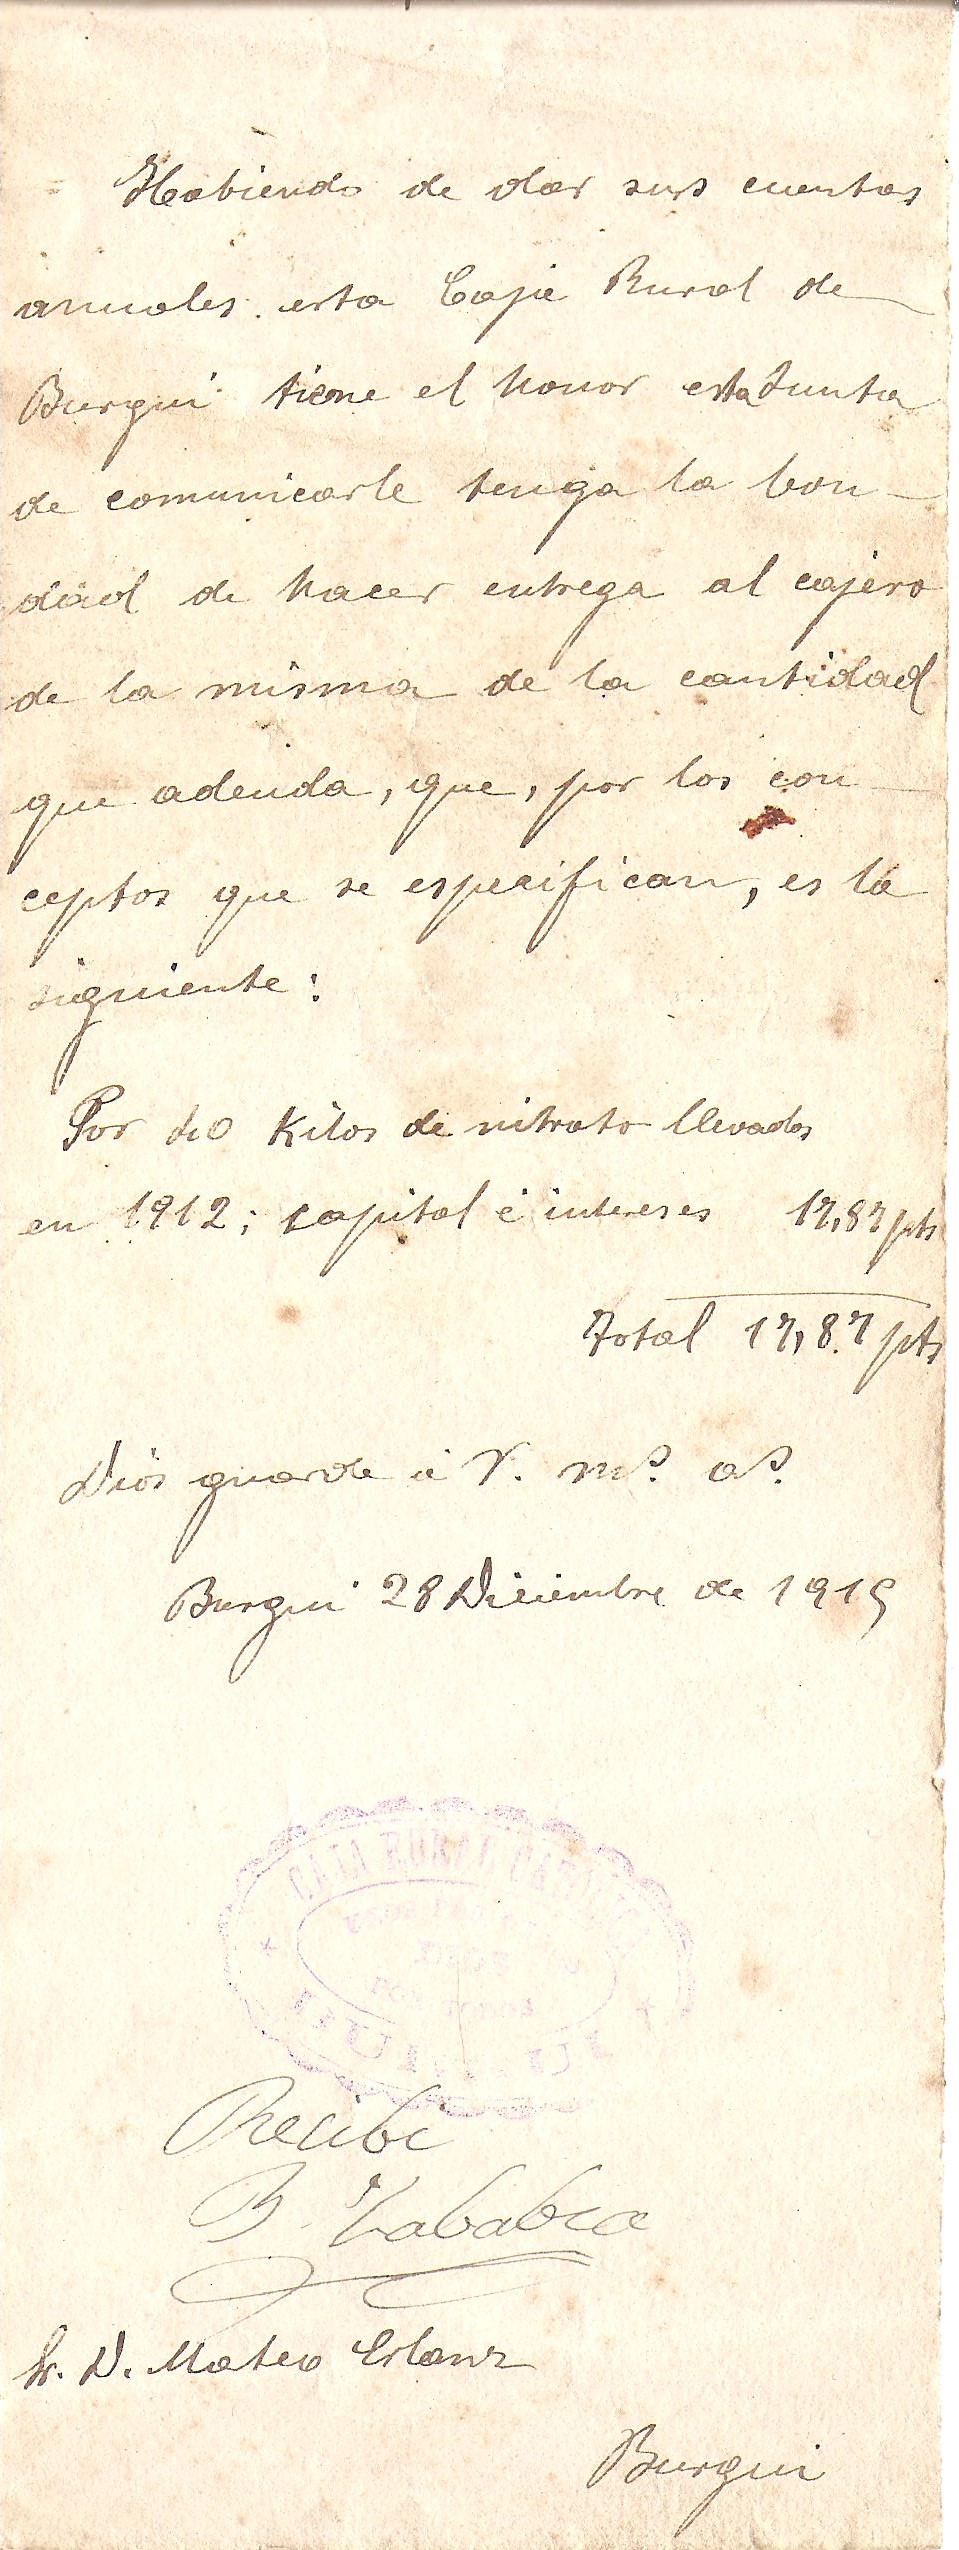 Habiendo de dar sus cuentas
anuales esta Caja Rural de
Burgui tiene el honor esta Junta
de comunicarle tenga la bon-
dad de hacer entrega al cajero
de la misma de la cantidad
que adeuda, que, por los con-
ceptos que se especifican, es la
siguiente:
Por 40 Kilos de nitrato llevados
en 1912; capital é intereses 17,87 pts
Total 17,87 pts
Dios guarde á V. ms. as.
Burgui 28 Diciembre de 1915
CAJA RURAL
Recibi
B. Zabalza
Sr. D. Mateo Glaria
Burgui